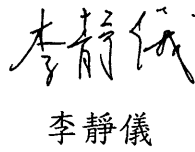 李靜儀
李靜儀